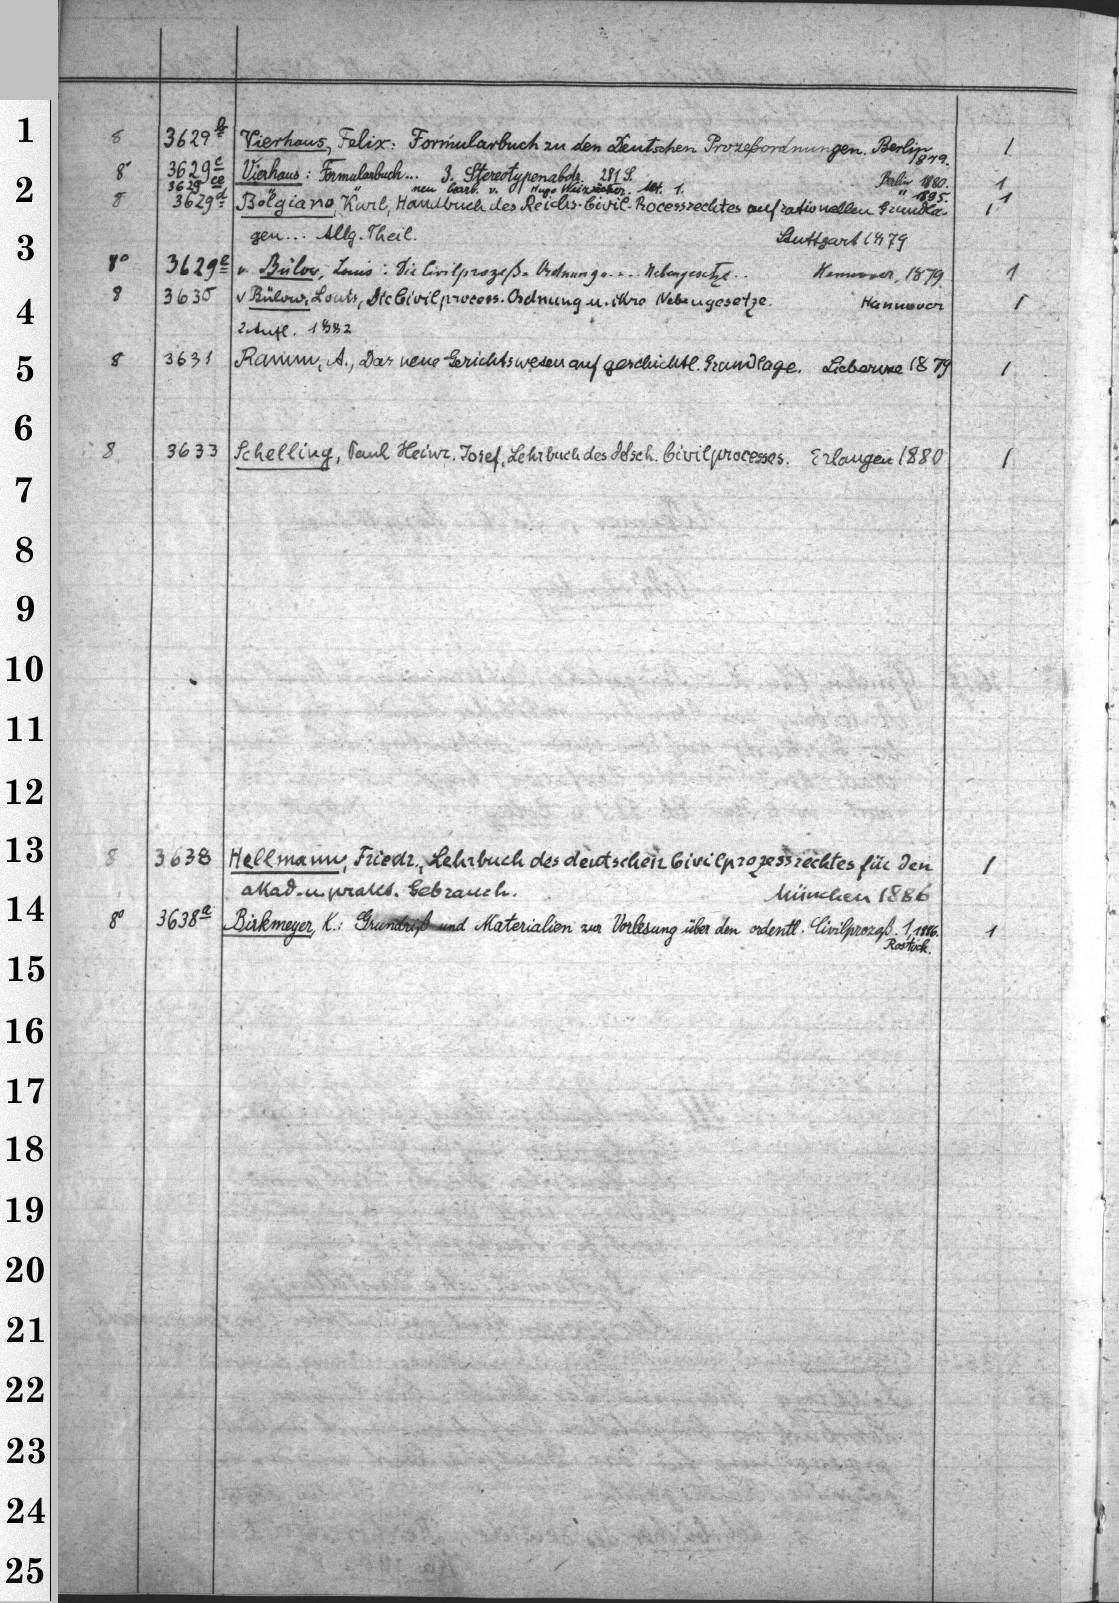 1 8 3629b Vierhaus, Felix: Formularbuch zu den Deutschen Prozeßordnungen. Berlin 1879. 1
8° 3629c Vierhaus: Formularbuch... 3. Stereotypenabdr. 281 S. Berlin 1880. 1
2 3629ce neu bearb. v. Hugo 1. " 1895.
8 3629d Bolgiano, Karl, Handbuch des Reichs-Civil-Processrechtes auf rationellen Grundla- 1
3 gen... Allg. Theil. Stuttgart 1879
8° 3629e v. Bülow, Louis: Die Civilprozeß-Ordnung... Nebengesetze.. Hannover, 1879. 1
4 8 3630 v Bülow, Louis, Die Civilprocess-Ordnung u. ihre Nebengesetze. Hannover 1
2. Aufl. 1882
5 8 3631 Ramm, A., Das neue Gerichtswesen auf geschichtl. Grundlage. 1879 1
6
8 3633 Schelling, Paul Heinr. Josef, Lehrbuch des dtsch. Civilprocesses. Erlangen 1880 1
7
8
9
10
11
12
13 8 3638 Hellmann, Friedr., Lehrbuch des deutschen Civilprozessrechtes für den 1
akad. u. prakt. Gebrauch. München 1886
14 8° 3638a Birkmeyer, K.: Grundriß und Materialien zur Vorlesung über den ordentl. Civilprozeß. 1, 1886. 1
Rostock.
15
16
17
18
19
20
21
22
23
24
25